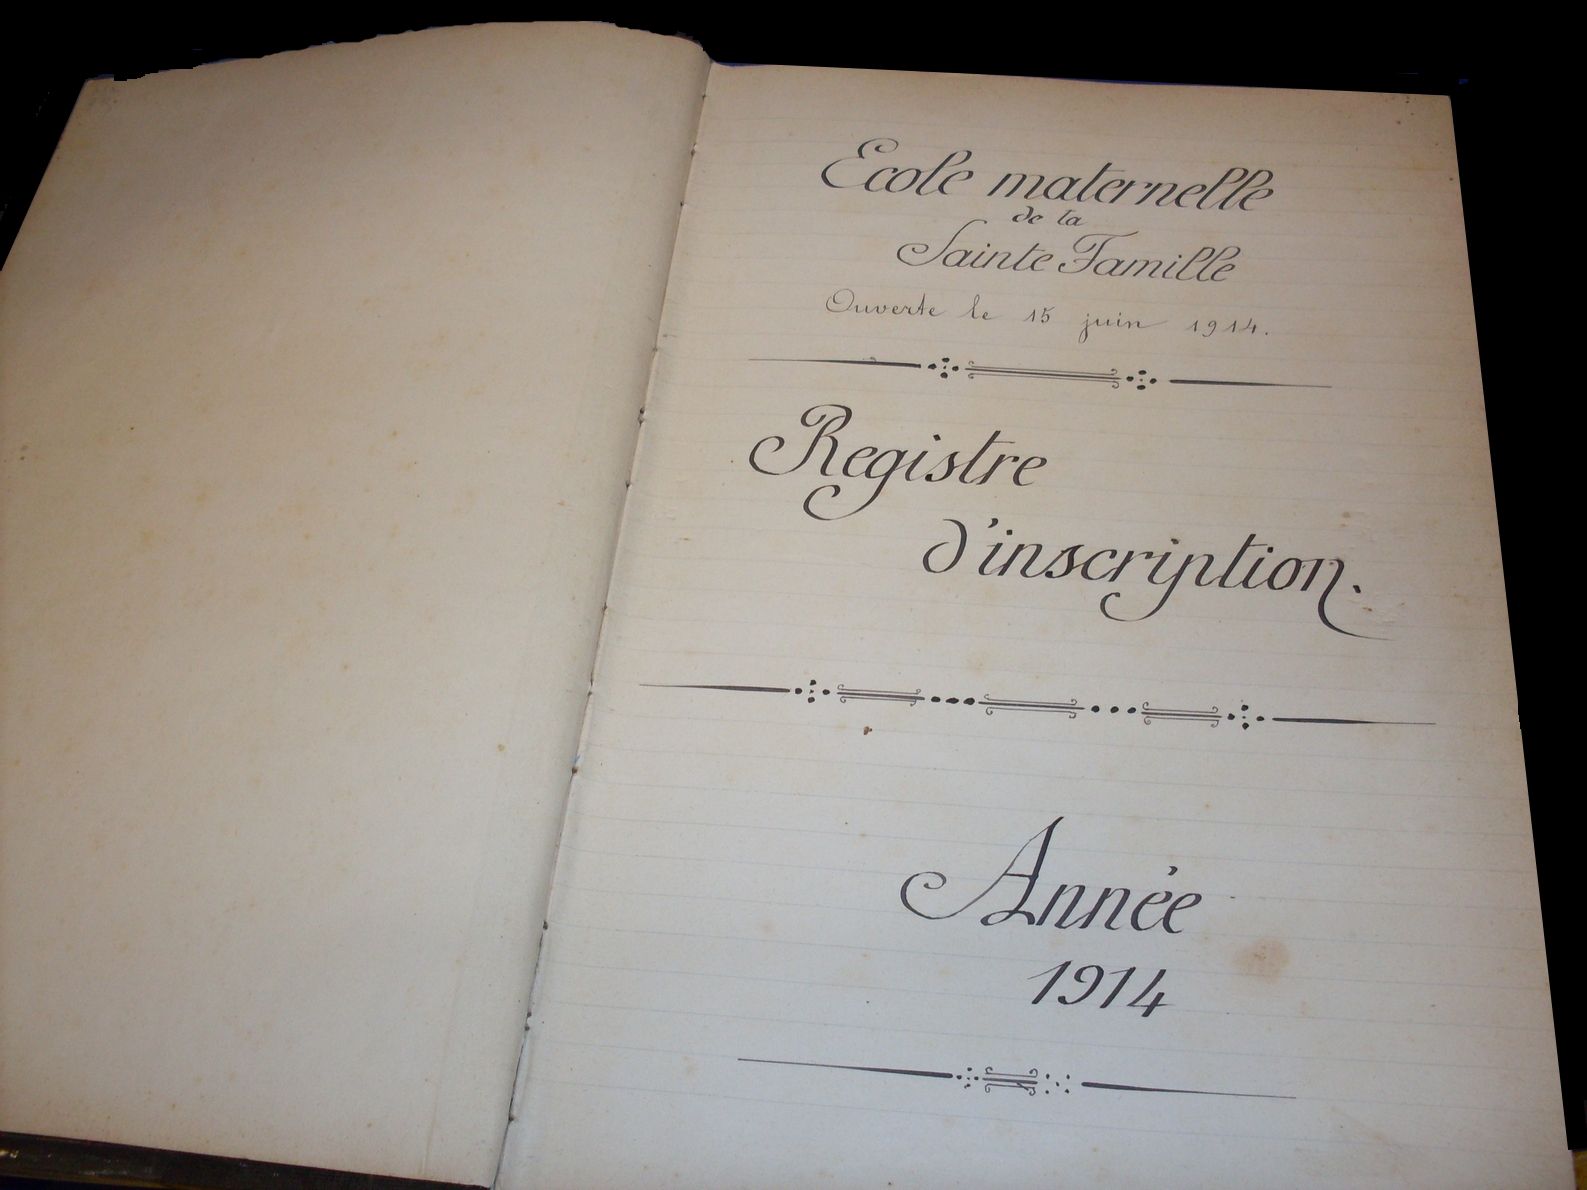 Ecole maternelle
de la
Sainte Famille
Ouverte le 15 juin 1914.
Registre
d'inscription.
Année
1914